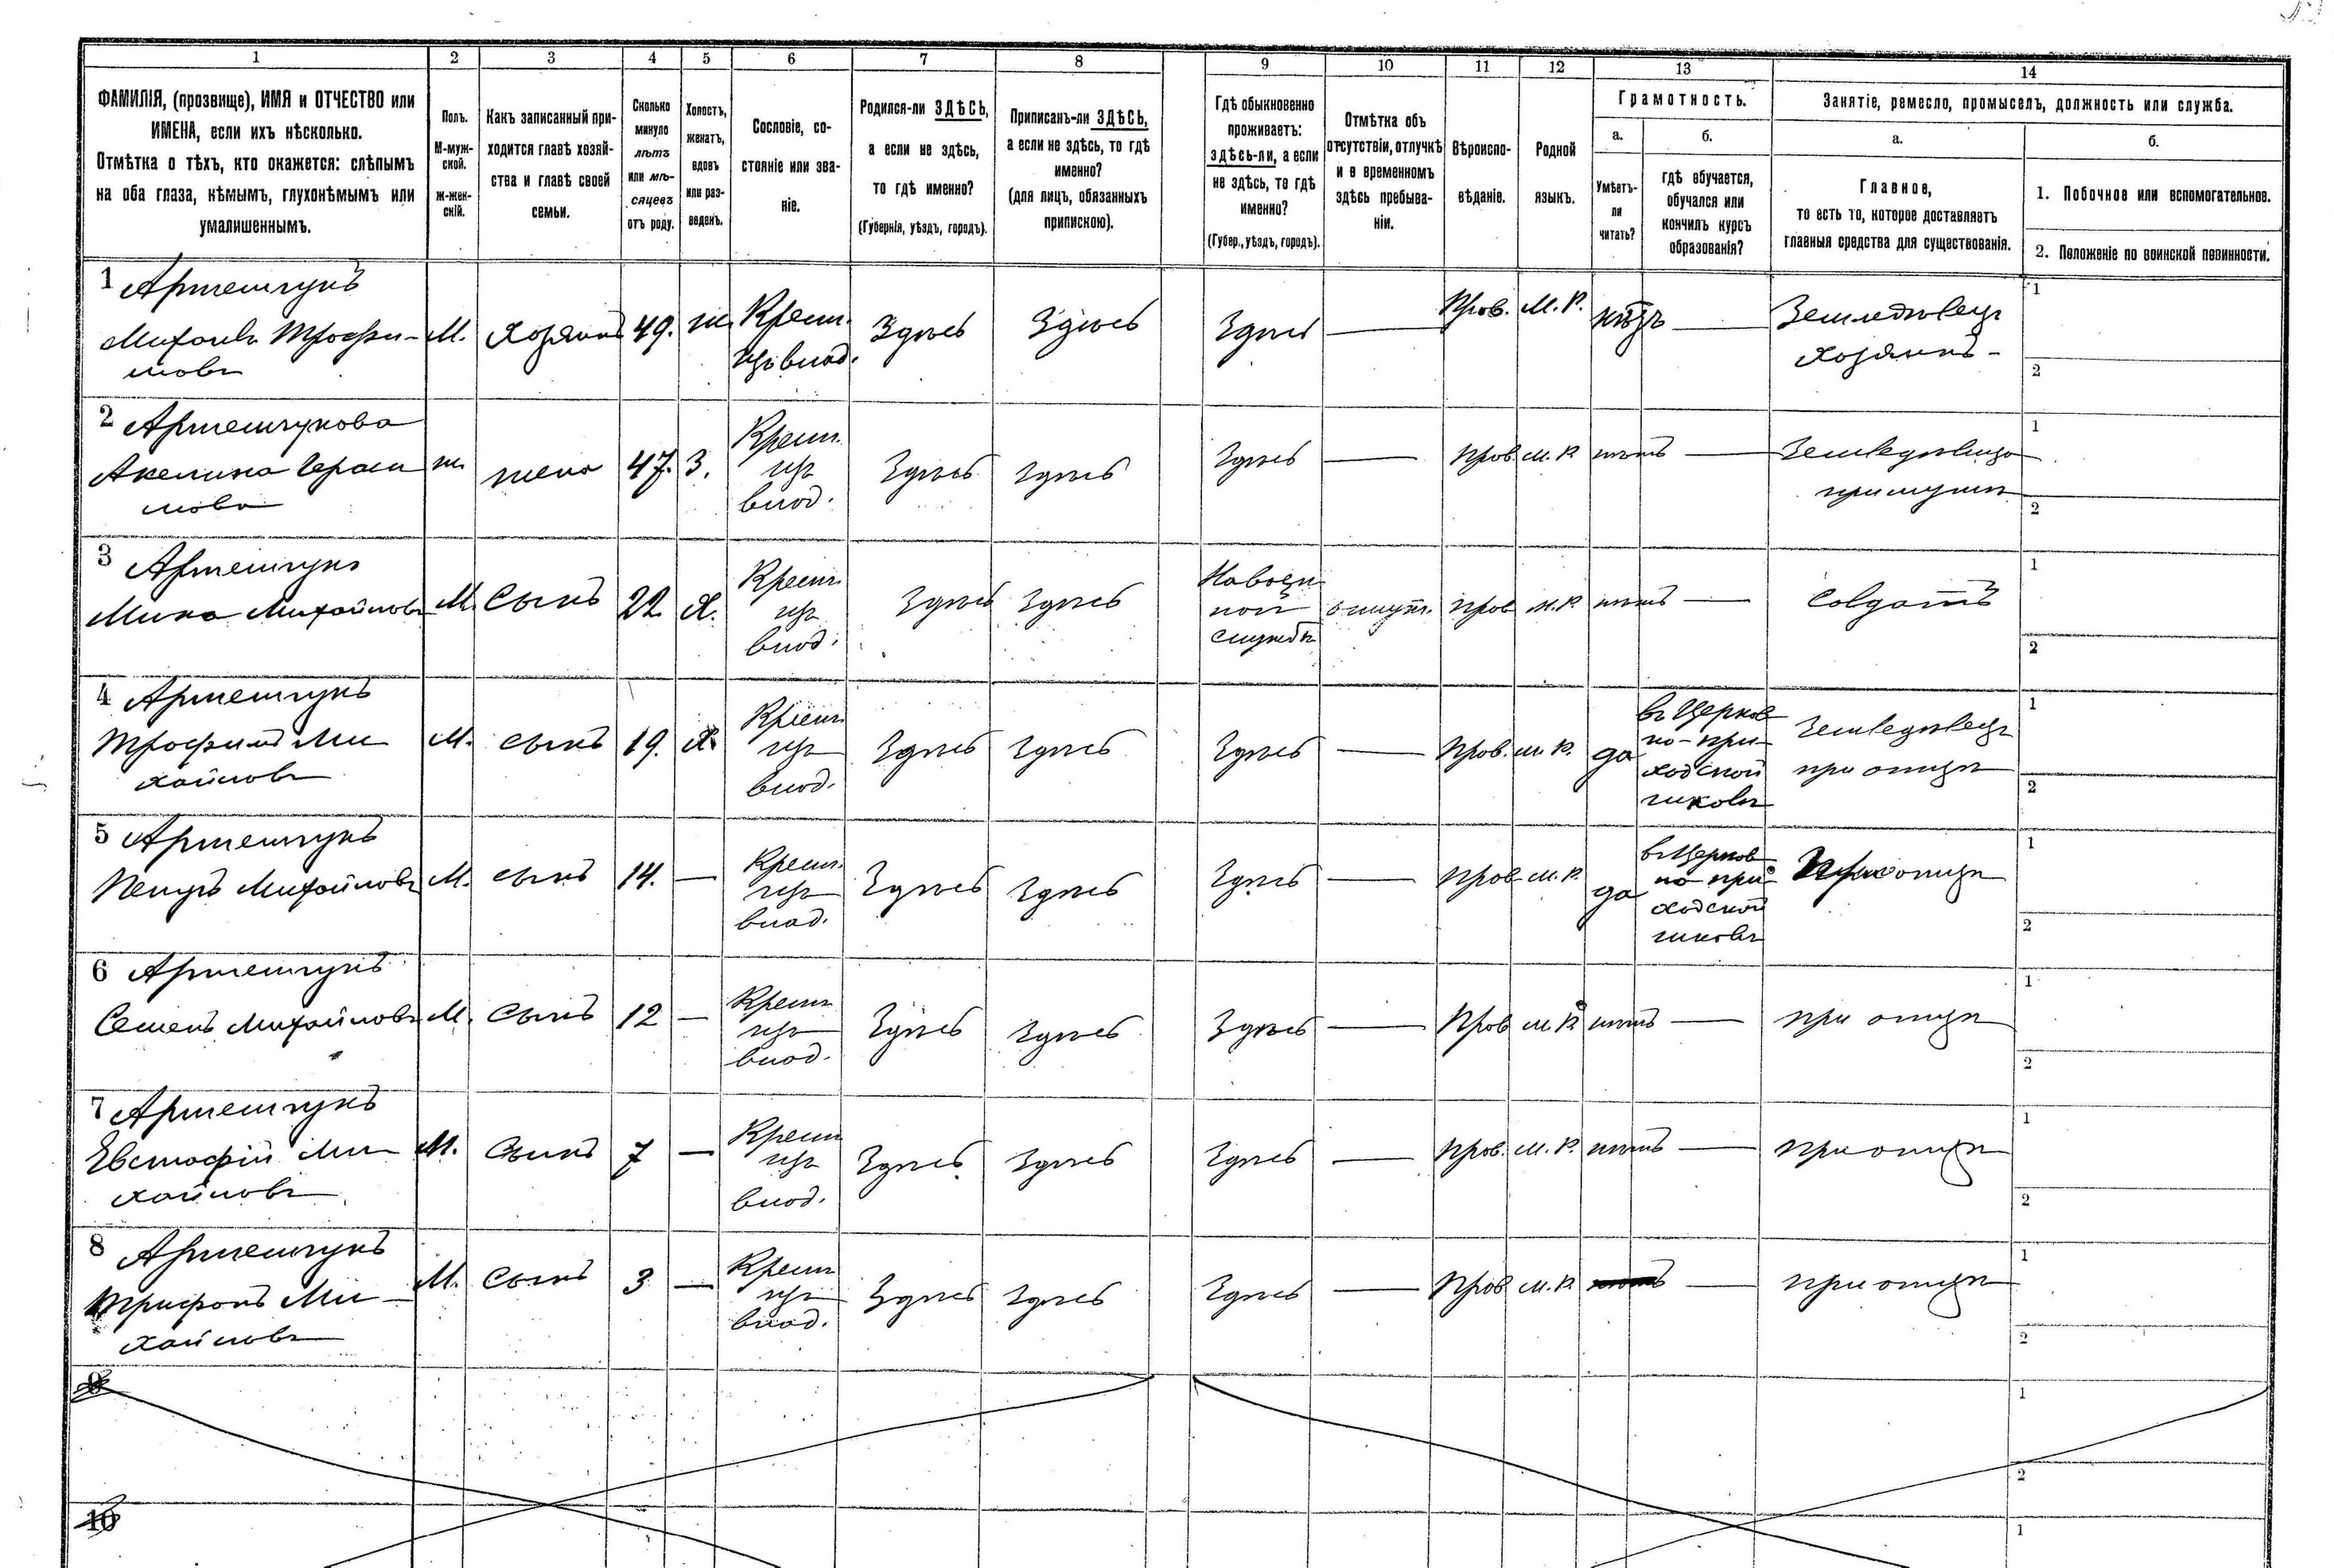 1 2 3 4 5 6 7 8 9 10 11 12 13 14
ФАМИЛІЯ, (прозвище), ИМЯ и ОТЧЕСТВО или
ИМЕНА, если ихъ нѣсколько.
Отмѣтка о тѣхъ, кто окажется: слѣпымъ
на оба глаза, нѣмымъ, глухонѣмымъ или
умалишеннымъ.
Полъ.
М-муж-
ской.
ж-жен-
скій.
Какъ записанный при-
ходится главѣ хозяй-
ства и главѣ своей
семьи.
Сколько
минуло
лѣтъ
или мѣ-
сяцевъ
отъ роду.
Холостъ,
женатъ,
вдовъ
или раз-
веденъ.
Сословіе, со-
стояніе или зва-
ніе.
Родился-ли ЗДѢСЬ,
а если не здѣсь,
то гдѣ именно?
(Губернія, уѣздъ, городъ).
Приписанъ-ли ЗДѢСЬ,
а если не здѣсь, то гдѣ
именно?
(для лицъ, обязанныхъ
припискою).
Гдѣ обыкновенно
проживаетъ:
здѣсь-ли, а если
не здѣсь, то гдѣ
именно?
(Губер., уѣздъ, городъ).
Отмѣтка объ
отсутствіи, отлучкѣ
и о временномъ
здѣсь пребыва-
ніи.
Вѣроиспо-
вѣданіе.
Родной
языкъ.
Грамотность.
а.
Умѣетъ-
ли
читать?
б.
гдѣ обучается,
обучался или
кончилъ курсъ
образованія?
Занятіе, ремесло, промыселъ, должность или служба.
а.
Главное,
то есть то, которое доставляетъ
главныя средства для существованія.
б.
1. Побочное или вспомогательное.
2. Положеніе по воинской повинности.
1 Артемчукъ
Михаилъ Трофи-
мовъ
М.
Хозяинъ
49.
ж.
Крест.
изъ влад.
Здѣсь
Здѣсь
Здѣсь
—
Прав.
М. Р.
нѣтъ
—
Земледѣлецъ
хозяинъ -
1
2
2 Артемчукова
Акелина Гераси
мова
ж
жена
47.
З.
Крест.
изъ
влад.
Здѣсь
Здѣсь
Здѣсь
—
Прав.
М. Р.
нѣтъ
—
Земледѣлица
при мужѣ
1
2
3 Артемчукъ
Мина Михайловъ
М.
Сынъ
22
Х.
Крест.
изъ
влад.
Здѣсь
Здѣсь
На воен
ной
службѣ
отлуч.
прав
М. Р.
нѣтъ
—
Солдатъ
1
2
4 Артемчукъ
Трофимъ Ми
хайловъ
М.
сынъ
19.
Х
Крест.
изъ
влад.
Здѣсь
Здѣсь
Здѣсь
—
Прав.
м. Р.
да
въ Церков
но-при-
ходской
школѣ
Земледѣлецъ
при отцѣ
1
2
5 Артемчукъ
Петръ Михайловъ
М.
сынъ
14.
—
Крест.
изъ
влад.
Здѣсь
Здѣсь
Здѣсь
—
прав
М. Р.
да
въ Церков
но при
ходской
школѣ
При отцѣ
1
2
6 Артемчукъ
Семенъ Михайловъ
М.
Сынъ
12
—
Крест
изъ
влад.
Здѣсь
Здѣсь
Здѣсь
—
Прав
м. Р.
нѣтъ
—
при отцѣ
1
2
7 Артемчукъ
Евстафій Ми
хайловъ
М.
Сынъ
7
—
Крест
изъ
влад.
Здѣсь
Здѣсь
Здѣсь
—
Прав.
М. Р.
нѣтъ
—
при отцѣ
1
2
8 Артемчукъ
Трифонъ Ми-
хайловъ
М.
Сынъ
3
—
Крест
изъ
влад.
Здѣсь
Здѣсь
Здѣсь
—
Прав
М. Р.
—
при отцѣ
1
2
9
1
2
10
1